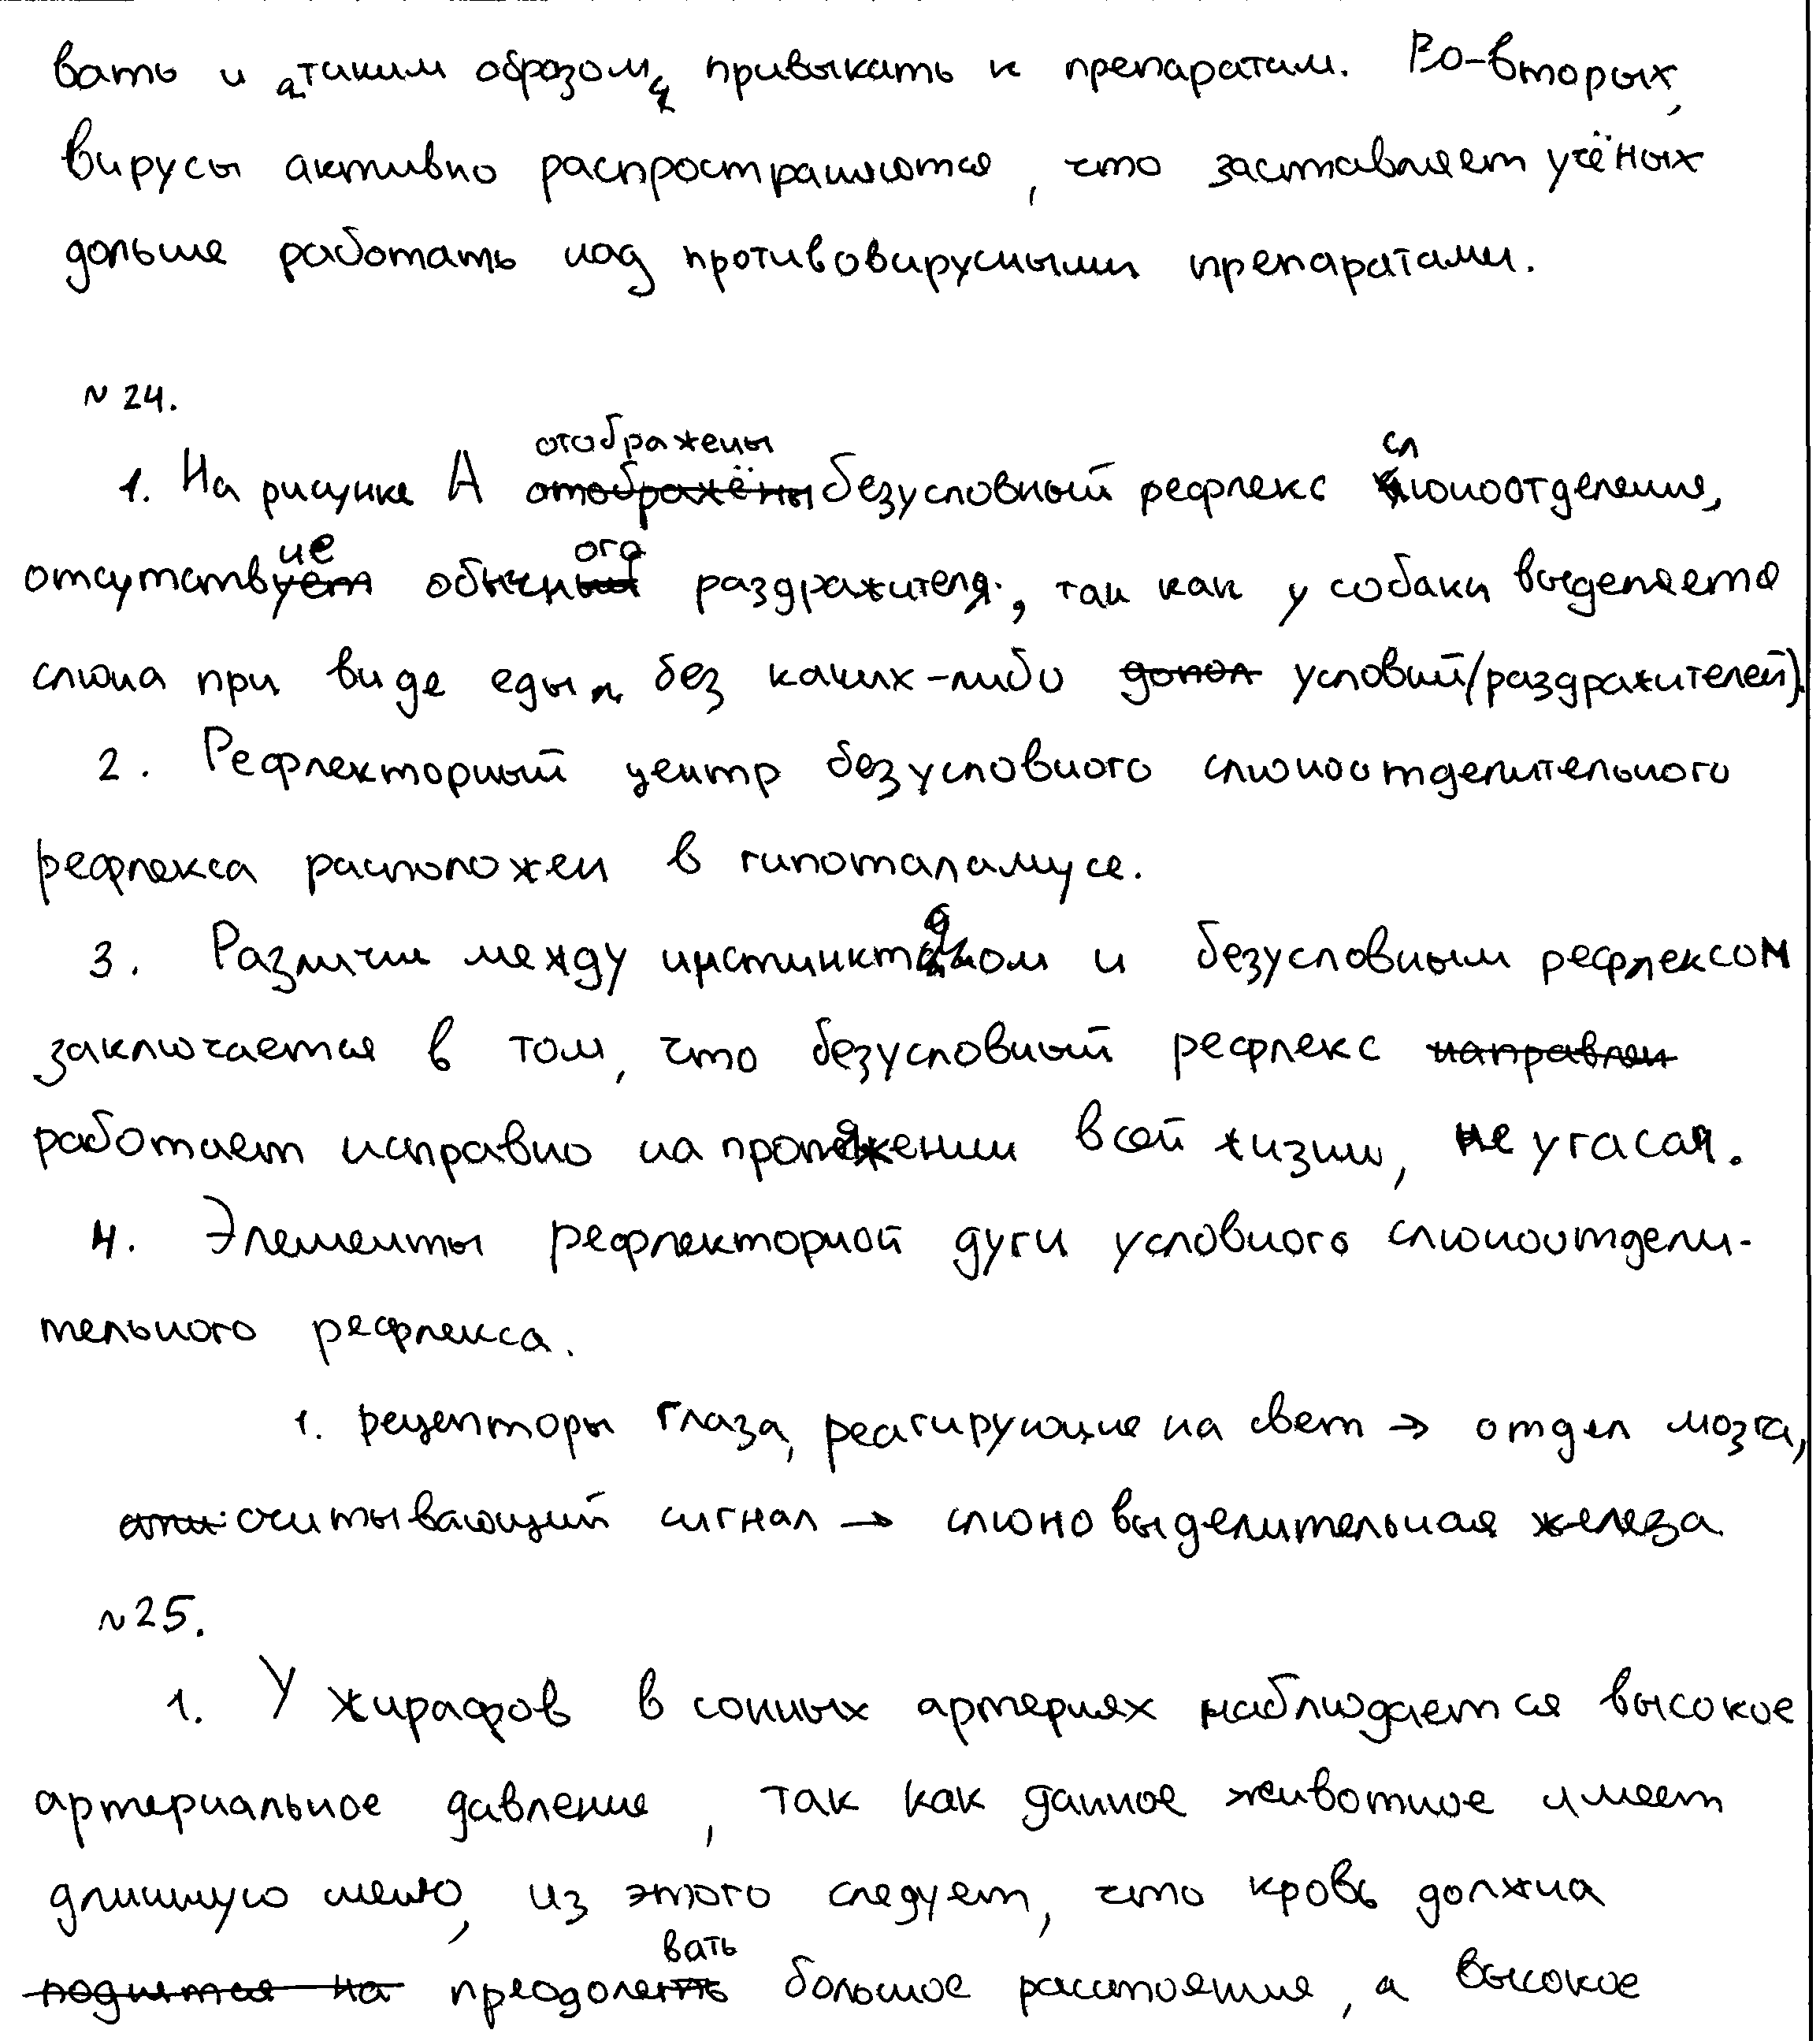 вать и таким образом привыкать к препаратам. Во-вторых,
вирусы активно распространяются, что заставляет учёных
дольше работать над противовирусными препаратами.
№ 24.
1. На рисунке А отображены безусловный рефлекс слюноотделения,
отсутствие обычного раздражителя, так как у собаки выделяется
слюна при виде еды без каких-либо условий/раздражителей).
2. Рефлекторный центр безусловного слюноотделительного
рефлекса расположен в гипоталамусе.
3. Различие между инстинктом и безусловным рефлексом
заключается в том, что безусловный рефлекс
работает исправно на протяжении всей жизни, не угасая.
4. Элементы рефлекторной дуги условного слюноотдели-
тельного рефлекса.
1. рецепторы глаза, реагирующие на свет → отдел мозга,
считывающий сигнал → слюновыделительная железа.
№25.
1. У жирафов в сонных артериях наблюдается высокое
артериальное давление, так как данное животное имеет
длинную шею, из этого следует, что кровь должна
преодолевать большое расстояние, а высокое